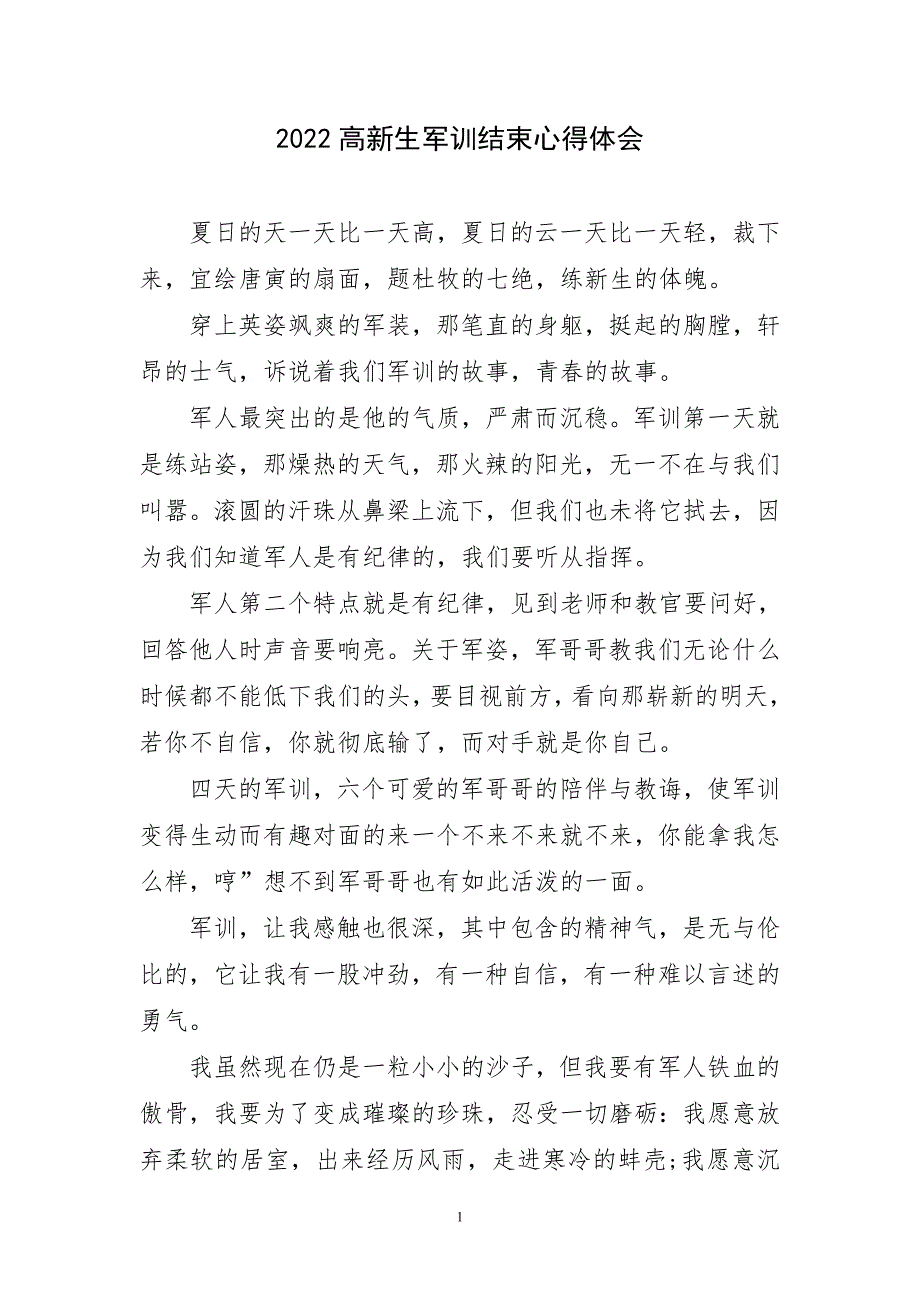 2022高新生军训结束心得体会
夏日的天一天比一天高，夏日的云一天比一天轻，裁下
来，宜绘唐寅的扇面，题杜牧的七绝，练新生的体魄。
穿上英姿飒爽的军装，那笔直的身躯，挺起的胸膛，轩
昂的士气，诉说着我们军训的故事，青春的故事。
军人最突出的是他的气质，严肃而沉稳。军训第一天就
是练站姿，那燥热的天气，那火辣的阳光，无一不在与我们
叫嚣。滚圆的汗珠从鼻梁上流下，但我们也未将它拭去，因
为我们知道军人是有纪律的，我们要听从指挥。
军人第二个特点就是有纪律，见到老师和教官要问好，
回答他人时声音要响亮。关于军姿，军哥哥教我们无论什么
时候都不能低下我们的头，要目视前方，看向那崭新的明天，
若你不自信，你就彻底输了，而对手就是你自己。
四天的军训，六个可爱的军哥哥的陪伴与教诲，使军训
变得生动而有趣对面的来一个不来不来就不来，你能拿我怎
么样，哼”想不到军哥哥也有如此活泼的一面。
军训，让我感触也很深，其中包含的精神气，是无与伦
比的，它让我有一股冲劲，有一种自信，有一种难以言述的
勇气。
我虽然现在仍是一粒小小的沙子，但我要有军人铁血的
傲骨，我要为了变成璀璨的珍珠，忍受一切磨砺：我愿意放
弃柔软的居室，出来经历风雨，走进寒冷的蚌壳;我愿意沉
1